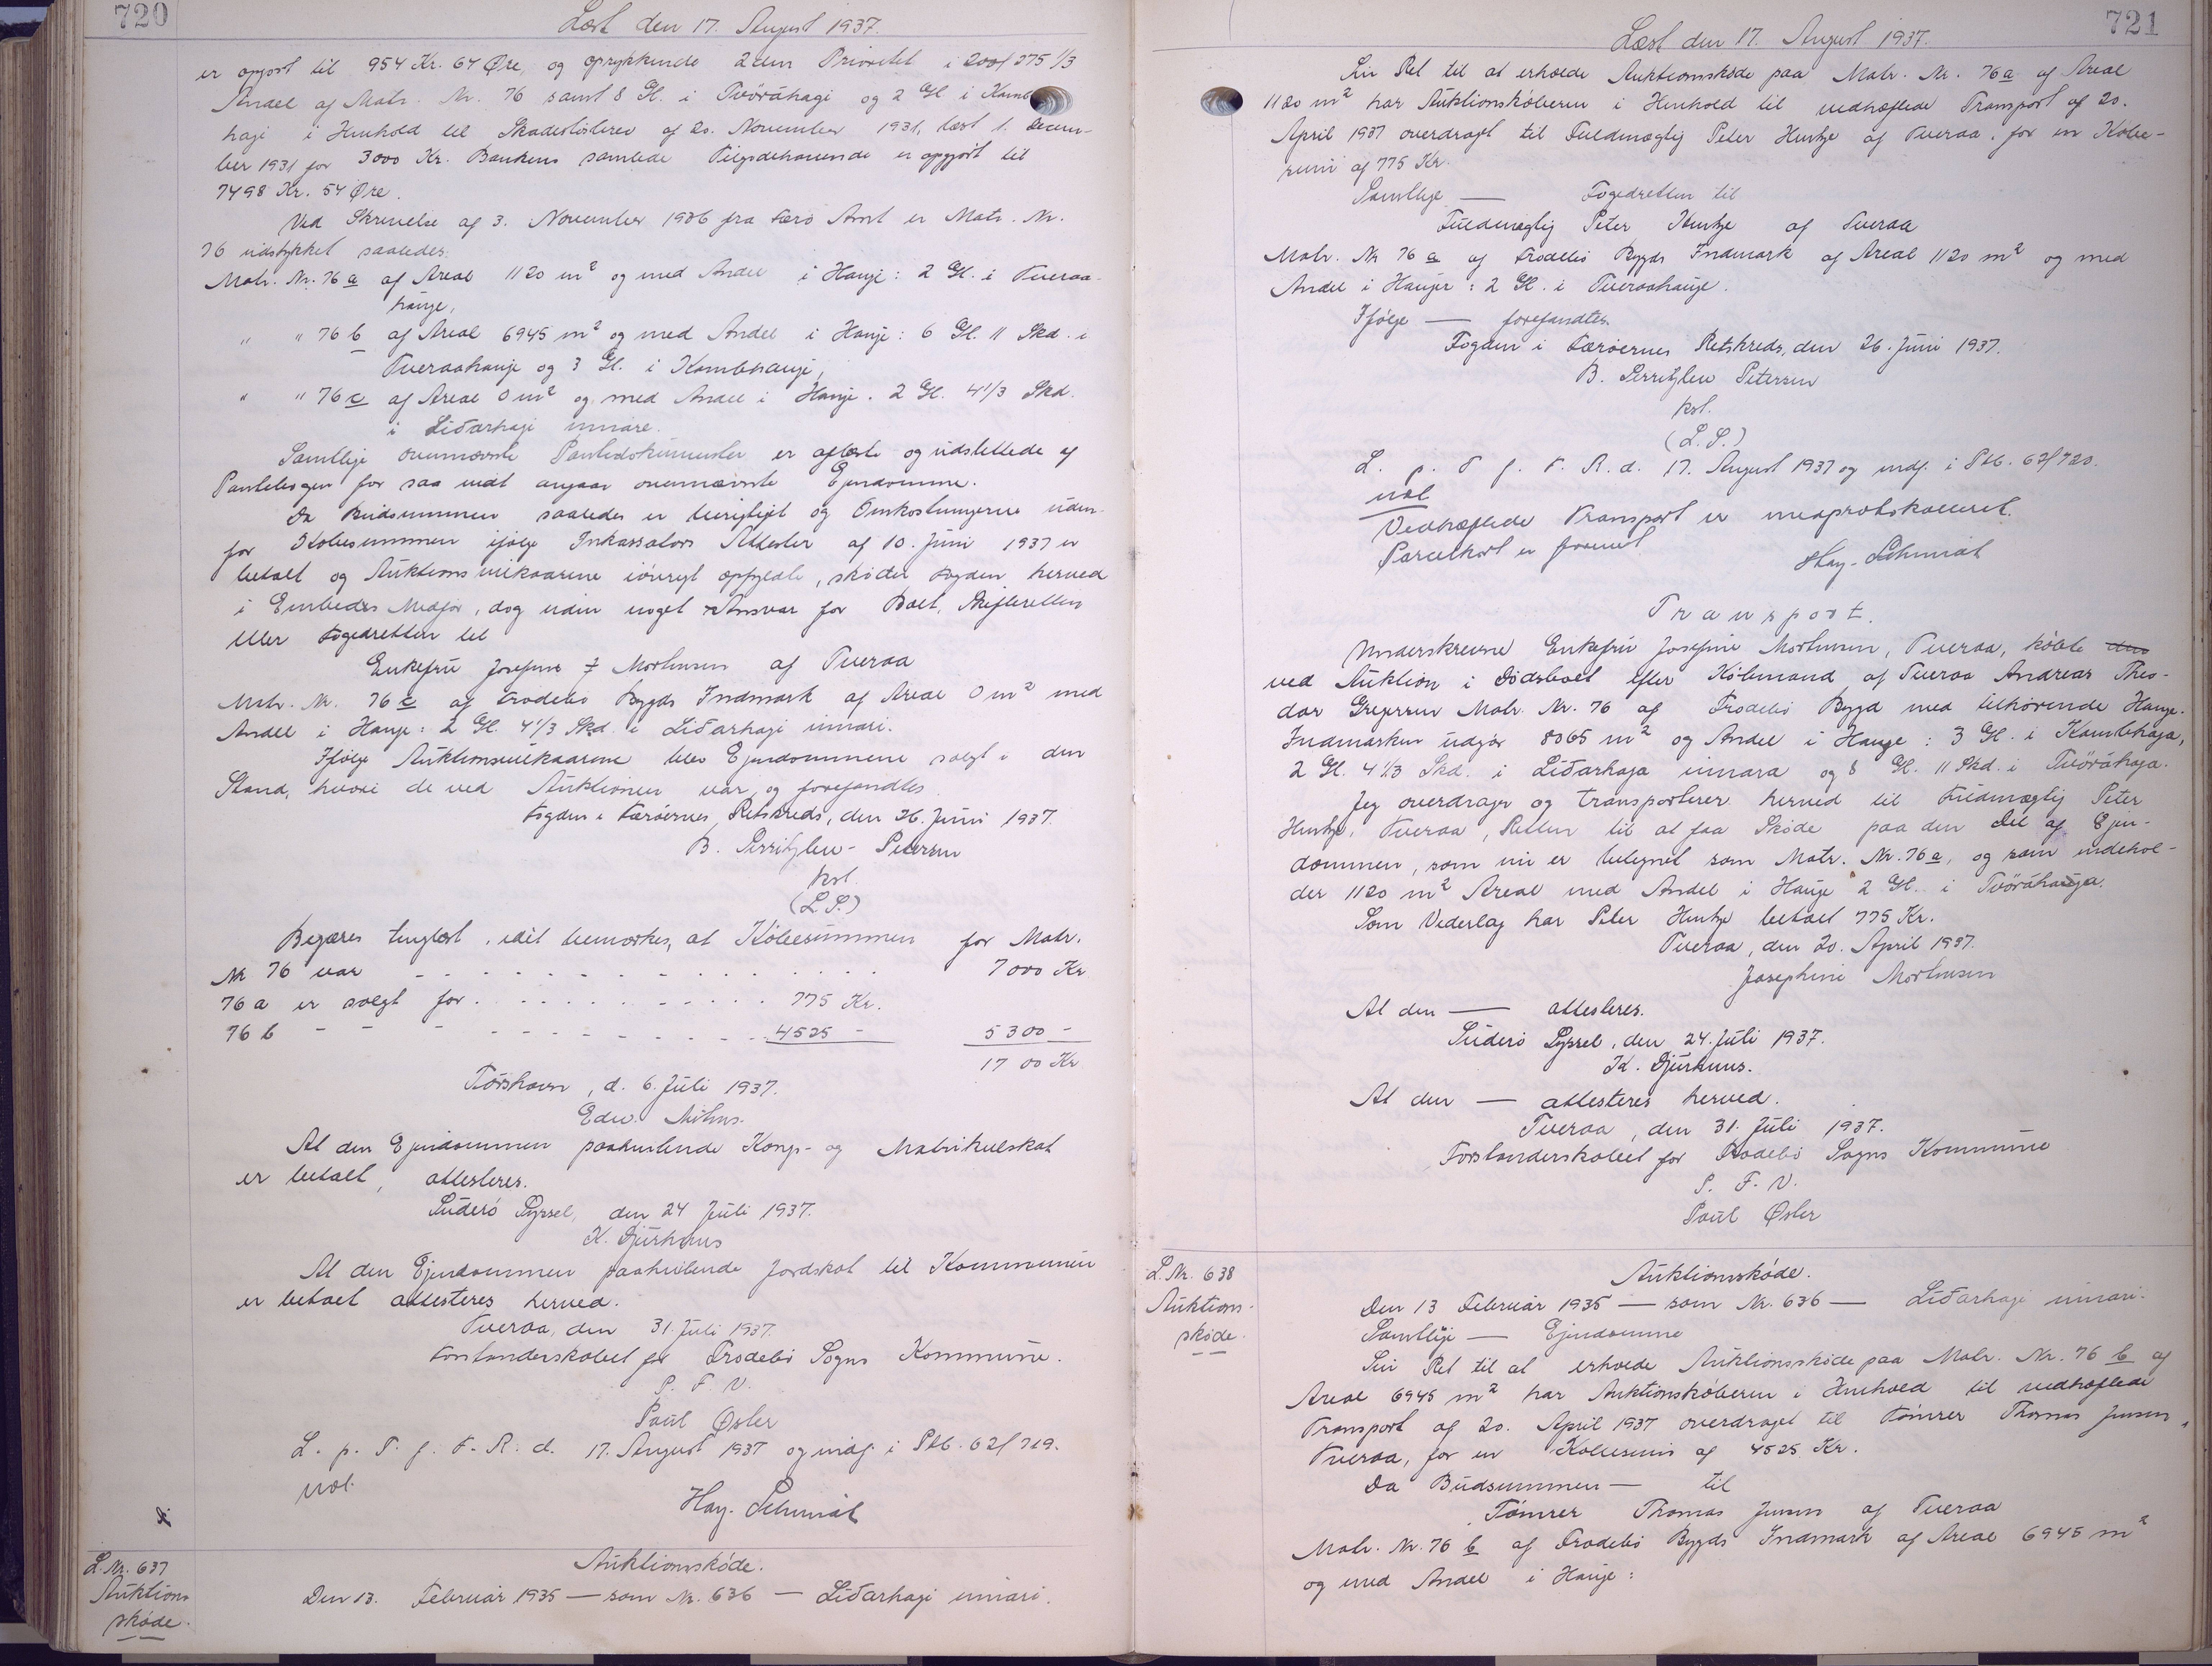 720
Læst den 17. August 1937.
er opgjort til 954 Kr. 64 Øre, og oprykkende 2den Prioritet i 200/275 1/3
Andel af Matr. Nr. 76 samt 8 Gl. i Tvöráhagi og 2 Gl i Kamb
hagi i Henhold til Skadesløsbrev af 20. November 1931, læst 1. Decem-
ber 1931 for 3000 Kr. Bankens samlede Tilgodehavende er opgjort til
7498 Kr. 54 Øre.
Ved Skrivelse af 3. November 1936 fra Færø Amt er Matr. Nr.
76 udstykket saaledes:
Matr. Nr. 76 a af Areal 1120 m² og med Andel i Hauje: 2 Gl. i Tveraa-
hauje,
" " 76 b af Areal 6945 m² og med Andel i Hauje: 6 Gl. 11 Skd. i
Tveraahauje og 3 Gl. i Kambhauje,
" " 76 c af Areal 0 m² og med Andel i Hauje. 2 Gl. 4 1/3 Skd.
i Liðarhagi innare.
Samtlige ovennævnte Pantedokumenter er aflæste og udslettede af
Pantebogen for saa vidt angaar ovennævnte Ejendomme.
Da Budsummen saaledes er berigtiget og Omkostningerne uden-
for Købesummen ifølge Inkassators Attester af 10. Juni 1937 er
betalt og Auktionsvilkaarene iøvrigt opfyldte, skøder Fogden herved
i Embeds Medfør, dog uden noget Ansvar for Boet, Skifteretten
eller Fogedretten til
Enkefru Josefine J Mortensen af Tveraa
Matr. Nr. 76 c af Frodebø Bygds Indmark af Areal 0 m² med
Andel i Hauje: 2 Gl. 4 1/3 Skd. i Liðarhagi innari.
Ifølge Auktionsvilkaarene blev Ejendommene solgt i den
Stand, hvori de ved Auktionen var og forefandtes.
Fogden i Færøernes Retskreds, den 26. Juni 1937.
B. Serritzlew-Petersen
kst.
(L.S.)
Begæres tinglæst, idet bemærkes, at Købesummen for Matr.
Nr 76 var 7000 Kr
76 a er solgt for 775 Kr.
76 b - - 4525 - 5300 -
1700 Kr
Torshavn, d. 6. Juli 1937.
Edw. Mitens.
At den Ejendommen paahvilende Konge- og Matrikulskat
er betalt, attesteres.
Suderø Syssel, den 24 Juli 1937.
K. Djurhuus
At den Ejendommen paahvilende Jordskat til Kommunen
er betalt attesteres herved.
Tveraa, den 31. Juli 1937.
Forstanderskabet for Frodebø Sogns Kommune.
P. F. V.
Poul Øster
L. p. T. f. F. R. d. 17. August 1937 og indf. i Ptb. 62/719.
Hay-Schmidt
L. Nr. 637
Auktions
skøde.
Auktionsskøde.
Den 13. Februar 1935 — som Nr. 636 — Liðarhagi innari.
721
Læst den 17. August 1937.
Sin Ret til at erholde Auktionsskøde paa Matr. Nr. 76 a af Areal
1120 m² har Auktionskøberen i Henhold til vedhæftede Transport af 20.
April 1937 overdraget til Fuldmægtig Peter Hentze af Tveraa, for en Købe-
sum af 775 Kr.
Samtlige — Fogedretten til
Fuldmægtig Peter Hentze af Tveraa
Matr. Nr 76 a af Frodebø Bygds Indmark af Areal 1120 m² og med
Andel i Haujer: 2 Gl. i Tveraahauje.
Ifølge — forefandtes.
Fogden i Færøernes Retskreds, den 26. Juni 1937.
B. Serritzlew Petersen
kst.
(L.S.)
L. p. T. f. F. R. d. 17. August 1937 og indf. i Ptb. 62/720.
Vedhæftede Transport er medprotokolleret.
Parcelkort er forevist
Hay-Schmidt
Transport.
Underskrevne Enkefru Josefine Mortensen, Tveraa, købte
ved Auktion i Dødsboet efter Købmand af Tveraa Andreas Theo-
dor Gregersen Matr. Nr. 76 af Frodebø Bygd med tilhørende Hauge.
Indmarken udgør 8065 m² og Andel i Hauge: 3 Gl. i Kambhaga,
2 Gl. 4 1/3 Skd. i Liðarhaga innara og 8 Gl. 11 Skd. i Tvöráhaga.
Jeg overdrager og transporterer herved til Fuldmægtig Peter
Hentze, Tveraa, Retten til at faa Skøde paa den Del af Ejen-
dommen, som nu er betegnet som Matr. Nr. 76 a, og som indehol-
der 1120 m² Areal med Andel i Hauje 2 Gl. i Tvöráhauga.
Som Vederlag har Peter Hentze betalt 775 Kr.
Tveraa, den 20. April 1937.
Josephine Mortensen
At den — attesteres.
Suderø Syssel, den 24. Juli 1937.
K. Djurhuus.
At den — attesteres herved.
Tveraa, den 31. Juli 1937.
Forstanderskabet for Frodebø Sogns Kommune
P. F. V.
Poul Øster
L. Nr. 638
Auktions-
skøde.
Auktionsskøde.
Den 13 Februar 1935 — som Nr. 636 — Liðarhagi innari.
Samtlige — Ejendomme
Sin Ret til at erholde Auktionsskøde paa Matr. Nr. 76 b af
Areal 6945 m² har Auktionskøberen i Henhold til vedhæftede
Transport af 20. April 1937 overdraget til Tømrer Thomas Jensen,
Tveraa, for en Købesum af 4525 Kr.
Da Budsummen — til
Tømrer Thomas Jensen af Tveraa
Matr. Nr. 76 b af Frodebø Bygds Indmark af Areal 6945 m²
og med Andel i Hauje: